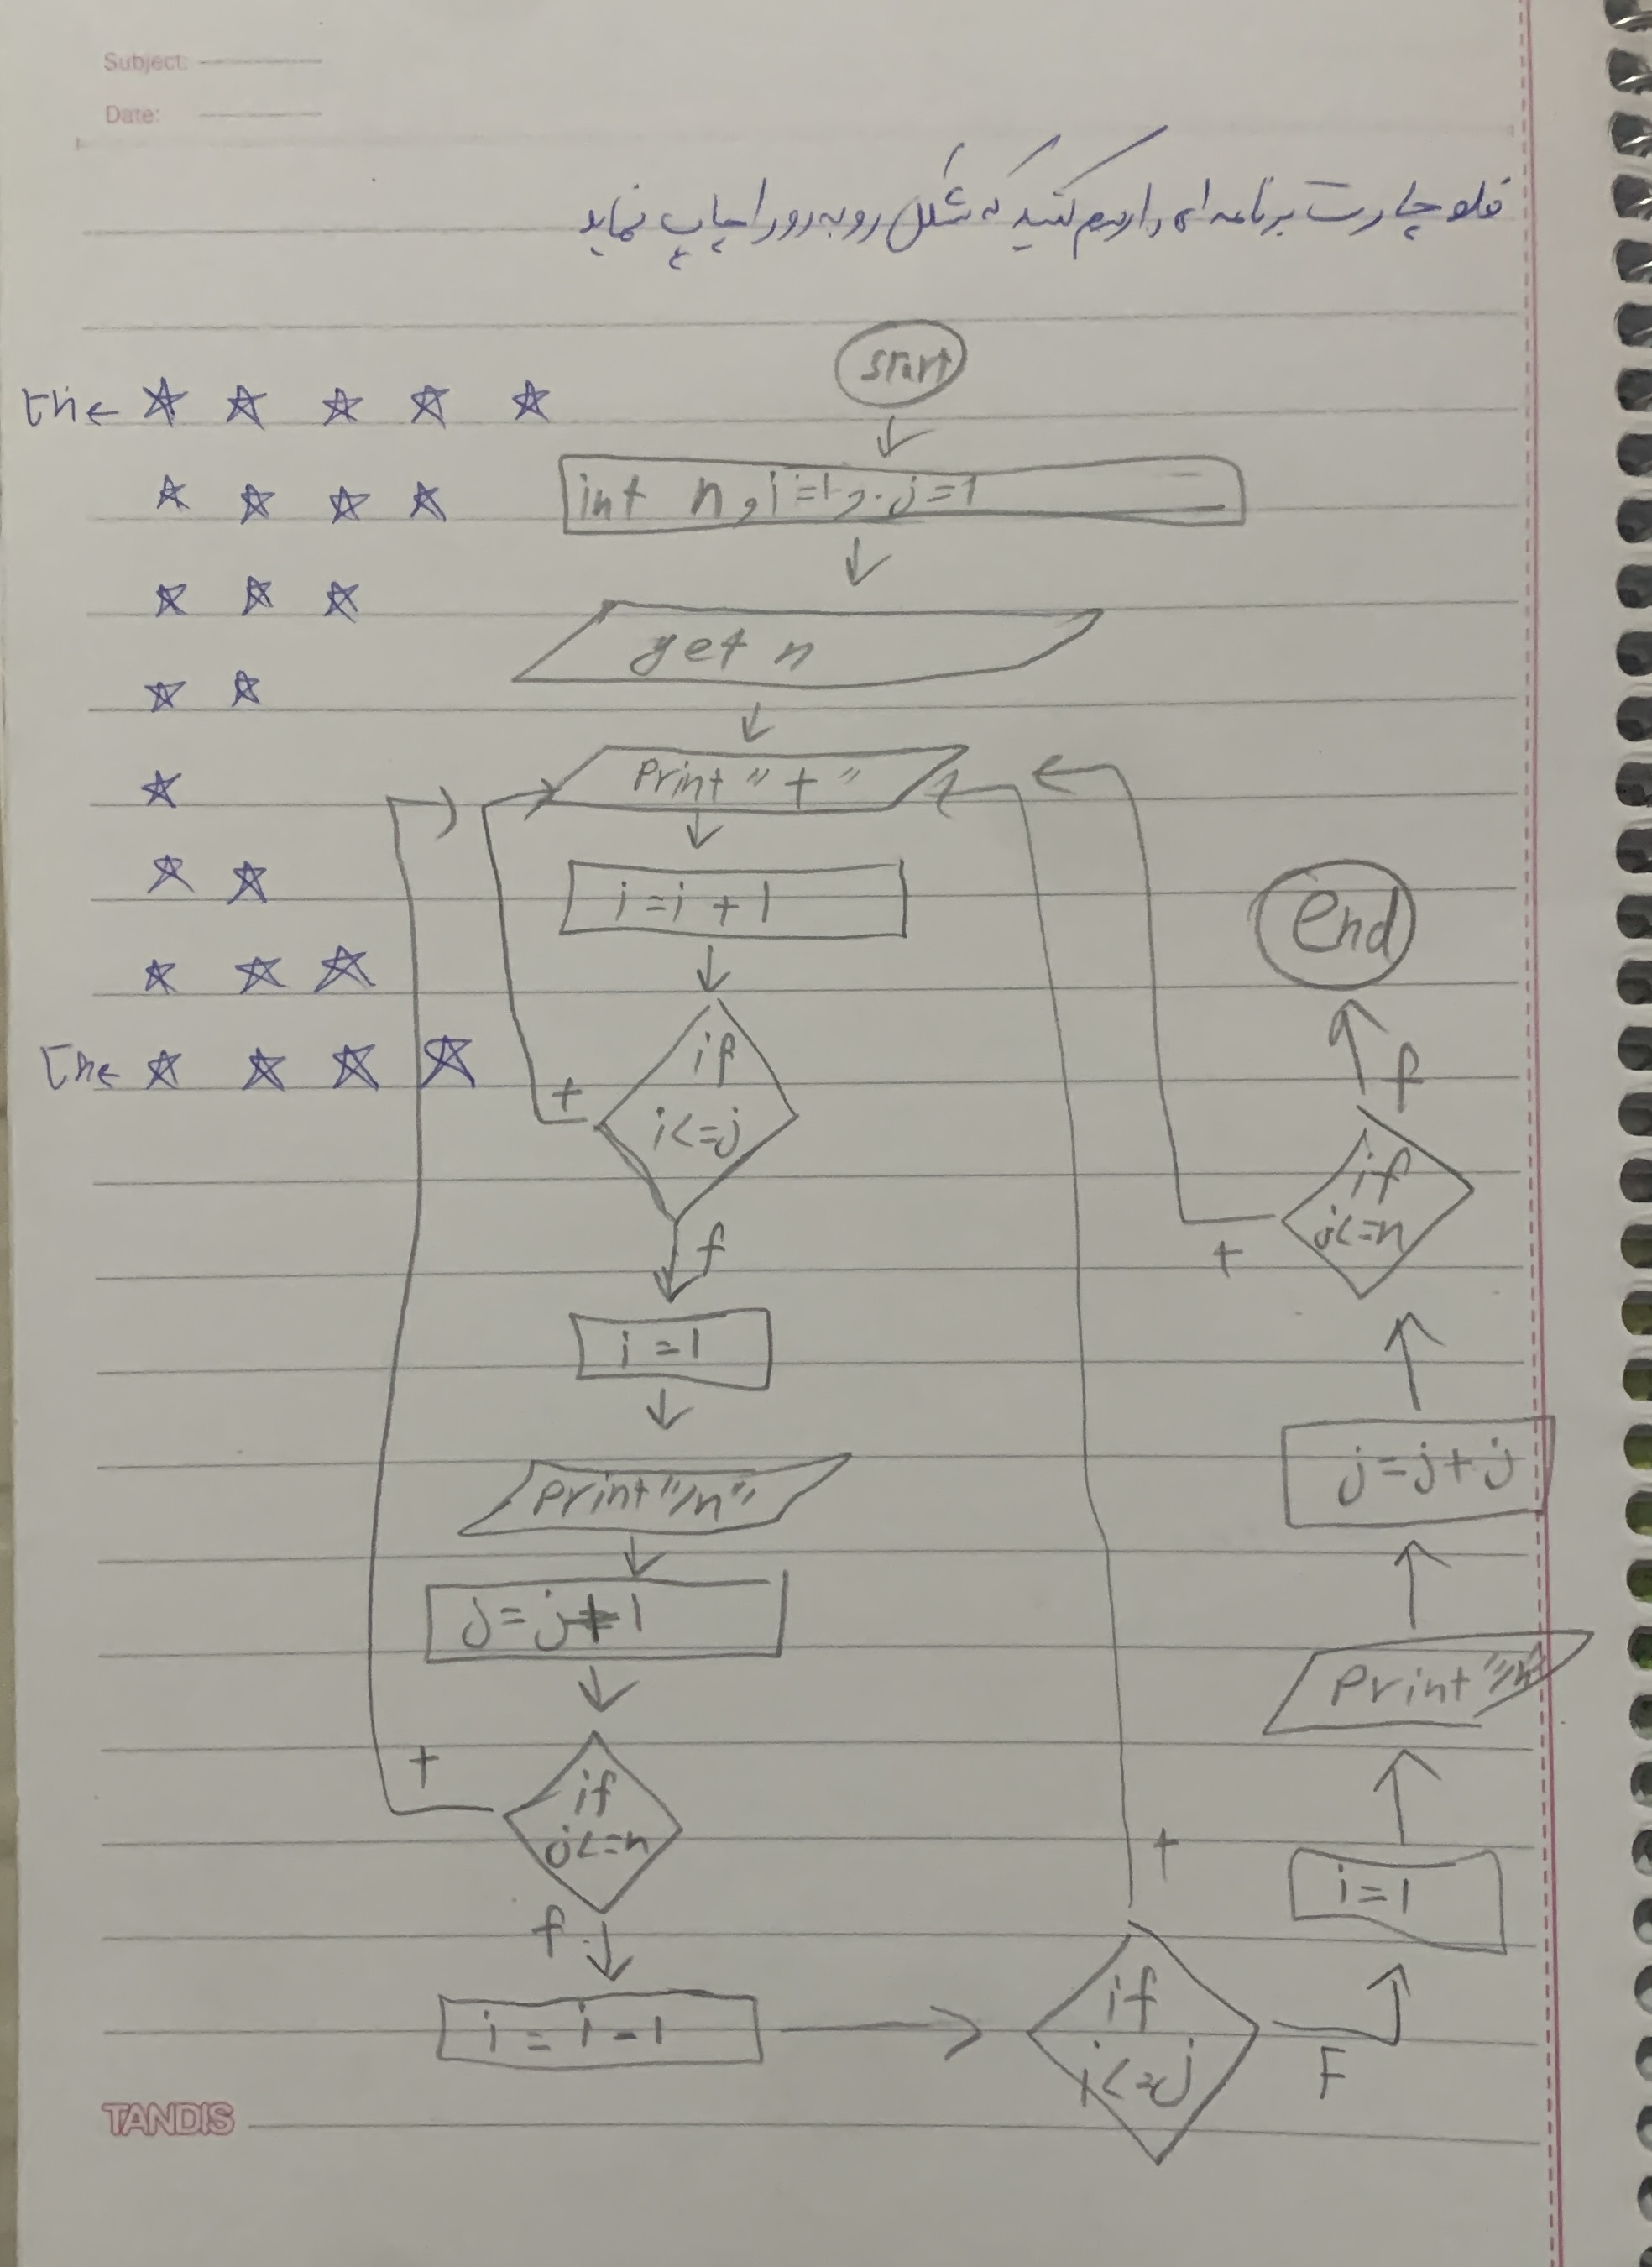 Subject:
Date:
فلوچارت برنامه ای را رسم کنید که شکل روبه رو را چاپ نماید
start
int n, i=1, j=1
get n
Print "+"
i=i+1
if
i<=j
+
f
i=1
Print "/n"
j=j+1
if
j<=n
+
f
i=i-1
if
i<=j
+
F
i=1
Print "/n"
j=j+j
if
j<=n
+
f
end
TANDIS